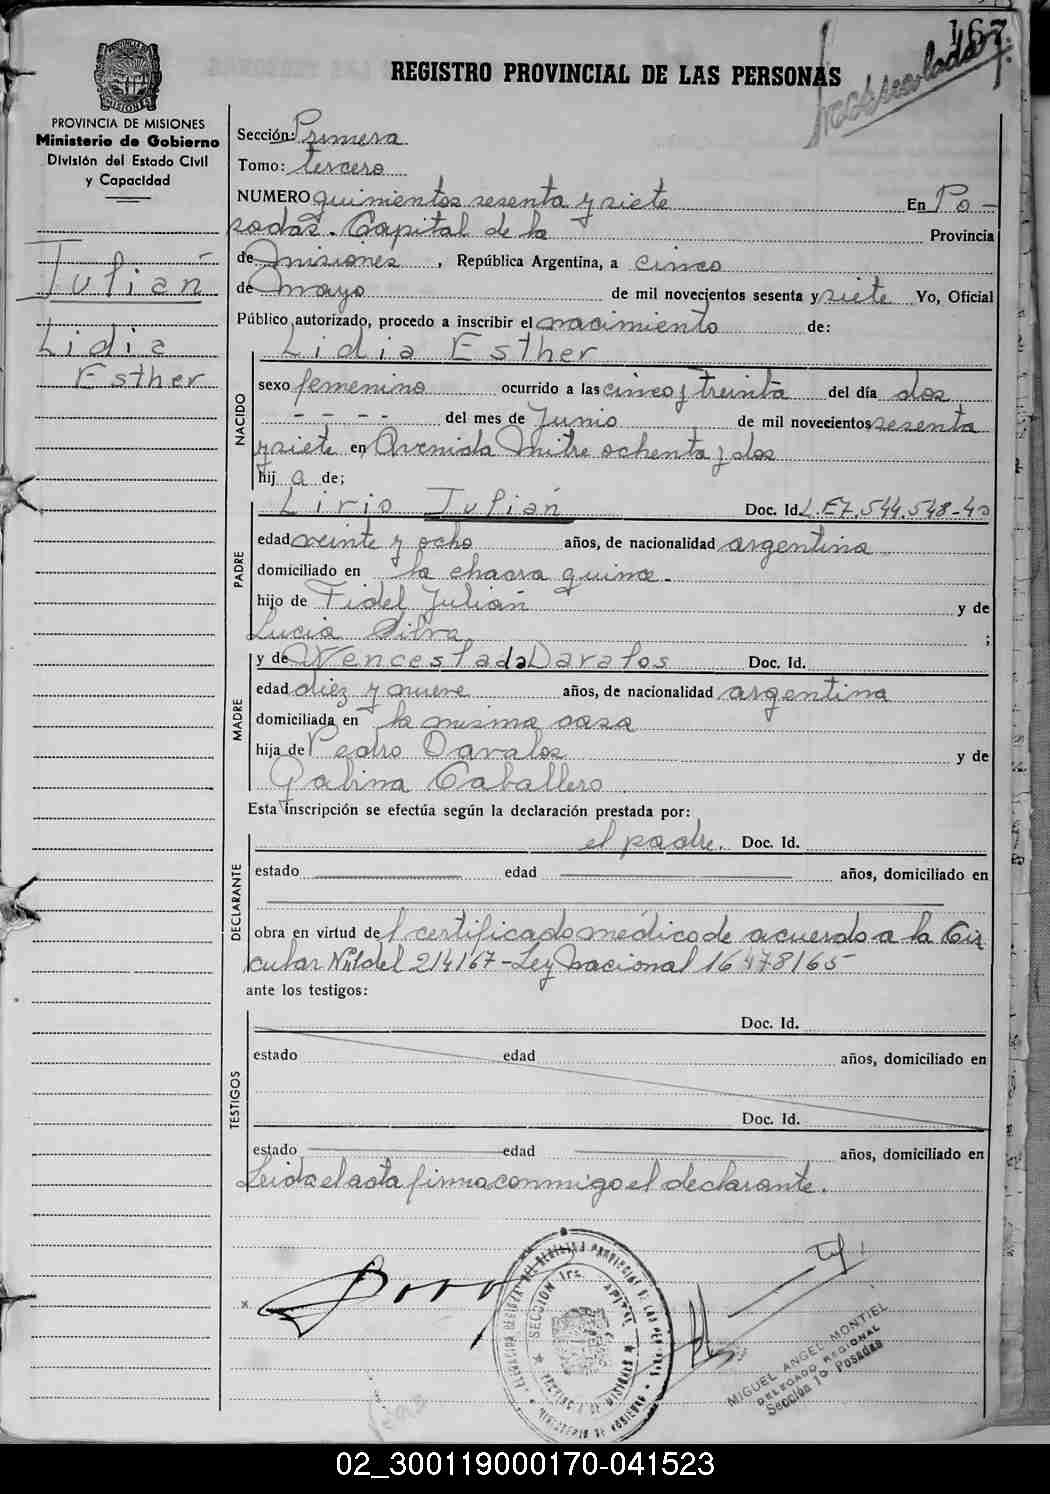 167.
REGISTRO PROVINCIAL DE LAS PERSONAS
PROVINCIA DE MISIONES
Ministerio de Gobierno
División del Estado Civil
y Capacidad
Julián
Lidia
Esther
Sección: Primera
Tomo: tercero
NUMERO quinientos sesenta y siete En Po-
sadas. Capital de la Provincia
de Misiones, República Argentina, a cinco
de mayo de mil novecientos sesenta y siete Yo, Oficial
Público autorizado, procedo a inscribir el nacimiento de:
Lidia Esther
NACIDO
sexo femenino ocurrido a las cinco y treinta del día dos
- - - - del mes de Junio de mil novecientos sesenta
y siete en Avenida Mitre ochenta y dos
hij a de;
PADRE
Lirio Julián Doc. Id. L.E7.544.548-
edad veinte y ocho años, de nacionalidad argentina
domiciliado en la chacra quince.
hijo de Fidel Julián y de
Lucia Silva ;
MADRE
y de Wenceslada Davalos Doc. Id.
edad diez y nueve años, de nacionalidad argentina
domiciliada en la misma casa
hija de Pedro Davalos y de
Gabina Caballero
Esta inscripción se efectúa según la declaración prestada por:
DECLARANTE
el padre. Doc. Id.
estado edad años, domiciliado en
obra en virtud de l certificado médico de acuerdo a la Cir
cular Nº1 del 214167-Ley Nacional 16478165
ante los testigos:
TESTIGOS
Doc. Id.
estado edad años, domiciliado en
Doc. Id.
estado edad años, domiciliado en
Leida el acta firma conmigo el declarante.
SECCION 1ra. CAPITAL
MINISTERIO DE GOBIERNO
MIGUEL ANGEL MONTIEL
DELEGADO REGIONAL
Sección 1º Posadas
02_300119000170-041523